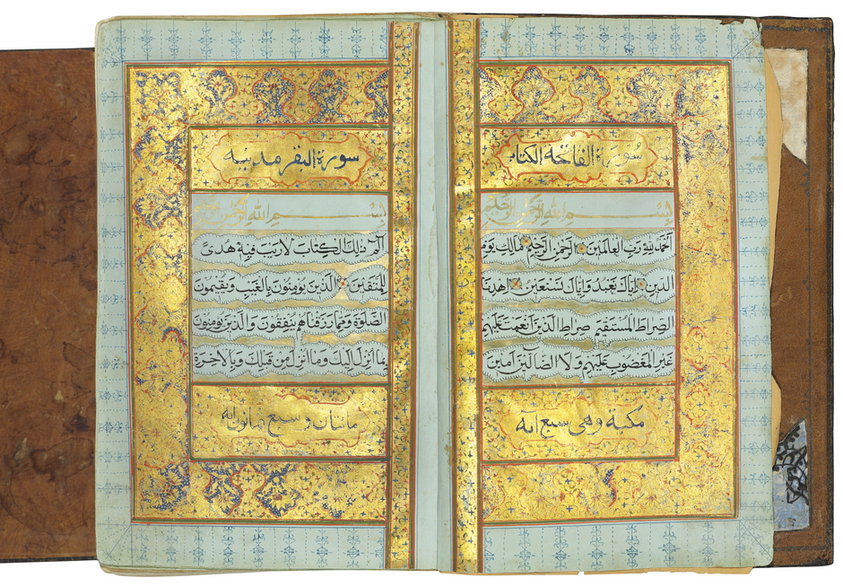 سورة الفاتحة الكتاب
بسم الله الرحمن الرحيم
الحمد لله رب العالمين الرحمن الرحيم مالك يوم
الدين اياك نعبد واياك نستعين اهدنا
الصراط المستقيم صراط الذين انعمت عليهم
غير المغضوب عليهم ولا الضالين آمين
مكية وهي سبع آية
سورة البقر مدنية
بسم الله الرحمن الرحيم
الم ذلك الكتاب لا ريب فيه هدى
للمتقين الذين يومنون بالغيب ويقيمون
الصلوة ومما رزقناهم ينفقون والذين يومنون
بما انزل اليك وما انزل من قبلك وبالاخرة
مائتان و سبع